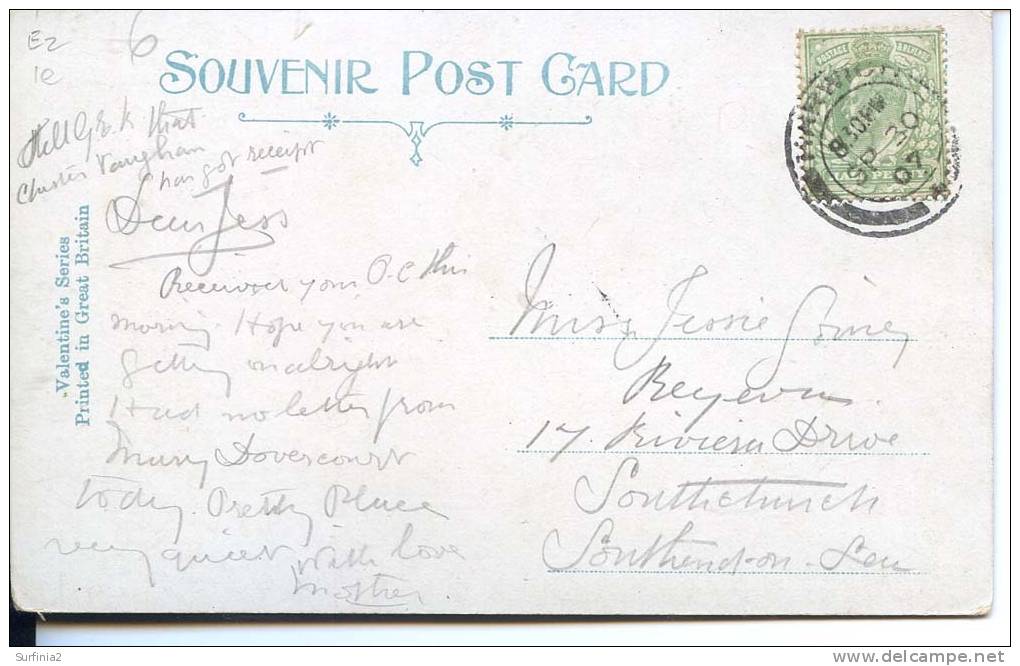 E2
1e
6
SOUVENIR POST CARD
POSTAGE & REVENUE
HALF PENNY
8.30 PM
SP 20
07
Tell G & K that
Vaughan
has got receipt
Dear Jess
Received your P.C this
morning. Hope you are
getting on alright
Had no letter from
Mary Dovercourt
today. Pretty Place
very quiet With love
Mother
'Valentine's Series
Printed in Great Britain
Miss Jessie
17. Riviera Drive
Southchurch
Southend-on-Sea
Surfinia2
www.delcampe.net